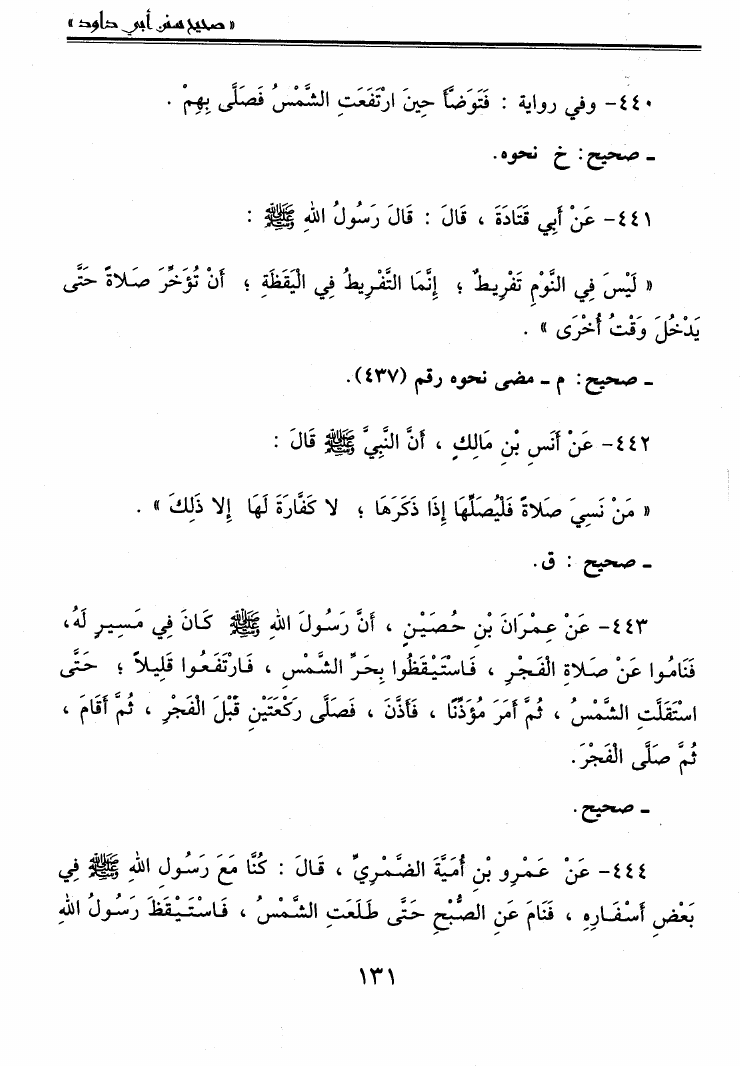 « صحيح سنن أبي داود »
٤٤٠- وفي رواية : فَتَوَضَّأَ حِينَ ارْتَفَعَتِ الشَّمْسُ فَصَلَّى بِهِمْ .
ـ صحيح: خ نحوه.
٤٤١- عَنْ أَبِي قَتَادَةَ ، قَالَ : قَالَ رَسُولُ اللهِ ﷺ :
« لَيْسَ فِي النَّوْمِ تَفْرِيطٌ ؛ إِنَّمَا التَّفْرِيطُ فِي الْيَقَظَةِ ؛ أَنْ تُؤَخِّرَ صَلاةً حَتَّى
يَدْخُلَ وَقْتُ أُخْرَى » .
ـ صحيح: م ـ مضى نحوه رقم (٤٣٧).
٤٤٢- عَنْ أَنَسِ بْنِ مَالِكٍ ، أَنَّ النَّبِيَّ ﷺ قَالَ :
« مَنْ نَسِيَ صَلاةً فَلْيُصَلِّهَا إِذَا ذَكَرَهَا ؛ لا كَفَّارَةَ لَهَا إِلا ذَلِكَ » .
ـ صحيح : ق.
٤٤٣- عَنْ عِمْرَانَ بْنِ حُصَيْنٍ ، أَنَّ رَسُولَ اللهِ ﷺ كَانَ فِي مَسِيرٍ لَهُ،
فَنَامُوا عَنْ صَلاةِ الْفَجْرِ ، فَاسْتَيْقَظُوا بِحَرِّ الشَّمْسِ ، فَارْتَفَعُوا قَلِيلاً ؛ حَتَّى
اسْتَقَلَّتِ الشَّمْسُ ، ثُمَّ أَمَرَ مُؤَذِّنًا ، فَأَذَّنَ ، فَصَلَّى رَكْعَتَيْنِ قَبْلَ الْفَجْرِ ، ثُمَّ أَقَامَ ،
ثُمَّ صَلَّى الْفَجْرَ.
ـ صحيح.
٤٤٤- عَنْ عَمْرِو بْنِ أُمَيَّةَ الضَّمْرِيِّ ، قَالَ : كُنَّا مَعَ رَسُولِ اللهِ ﷺ فِي
بَعْضِ أَسْفَارِهِ ، فَنَامَ عَنِ الصُّبْحِ حَتَّى طَلَعَتِ الشَّمْسُ ، فَاسْتَيْقَظَ رَسُولُ اللهِ
١٣١